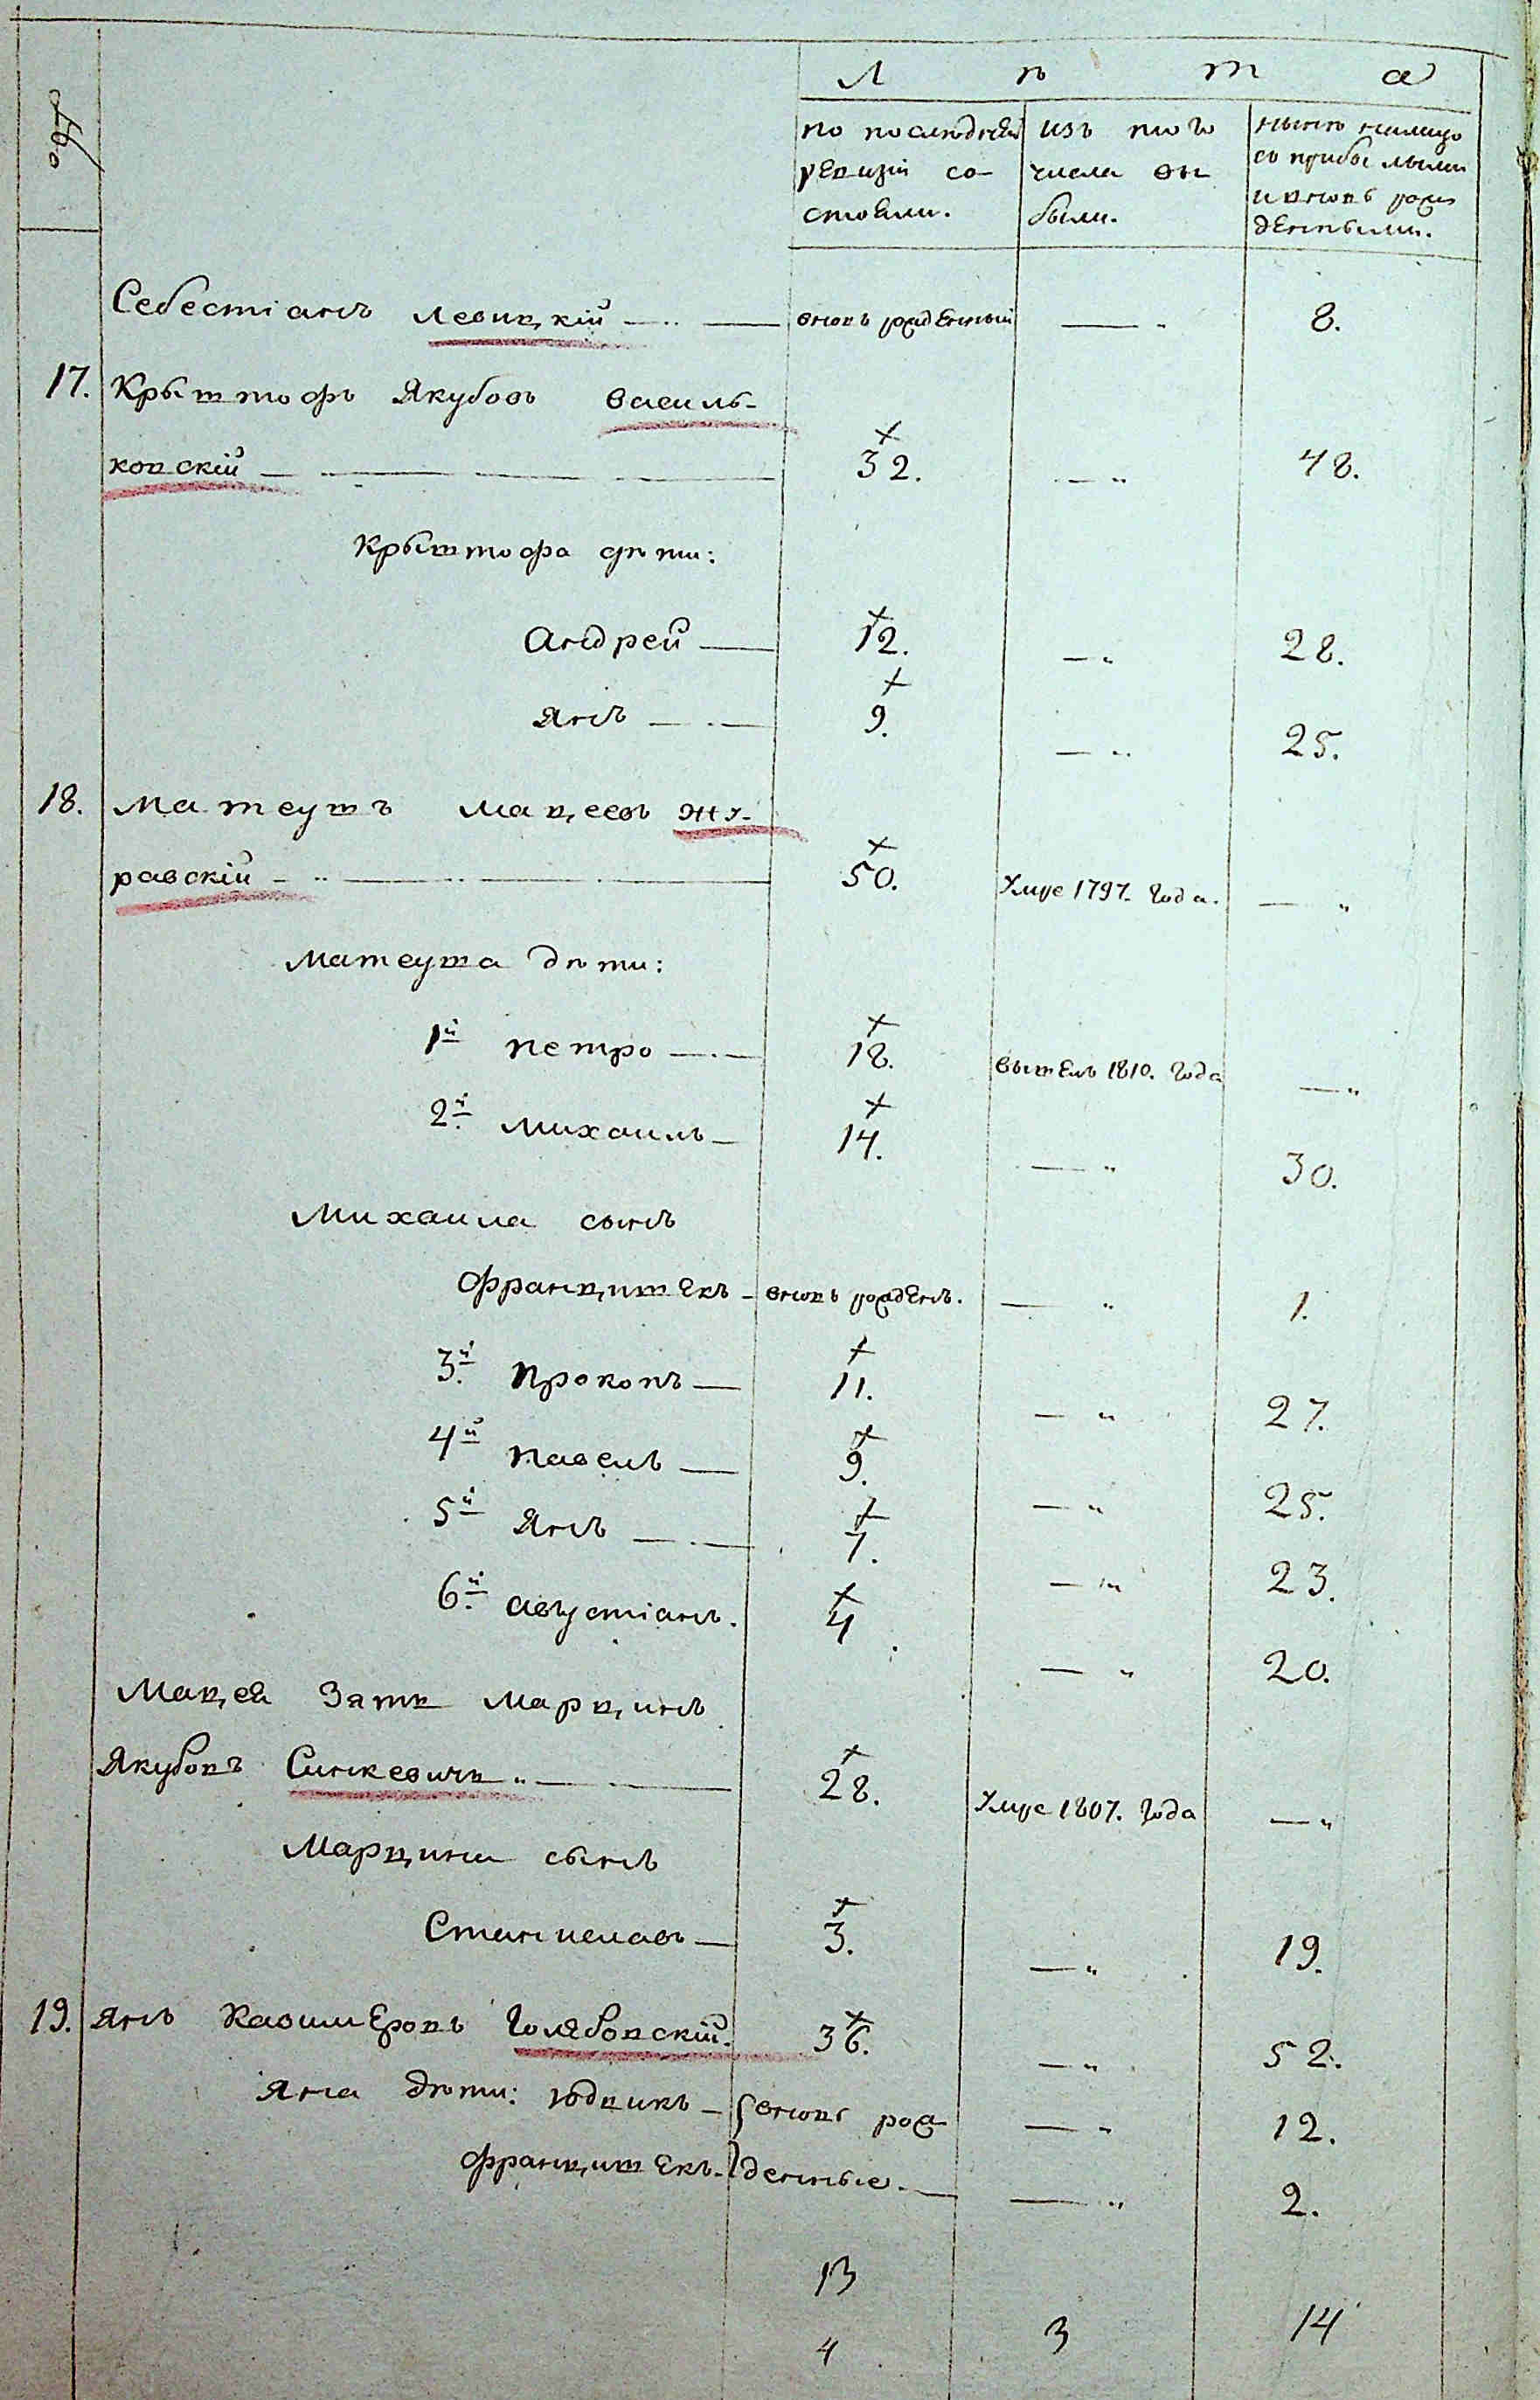 Лѣта
по послѣдней ревизіи со-
стояли.
изъ того
числа вы
были.
нынѣ налицо
съ прибылыми
и вновь рож
денными.
Себестіанъ Левицкій — вновь рожденный — 8.
17. Крыштофъ Якубовъ Василь-
ковскій — 32. — 48.
Крыштофа дѣти:
Андрей — 12. — 28.
Янъ — 9. — 25.
18. Матеушъ Мацеевъ Жу-
равскій — 50. Умре 1797. года. —
Матеуша дѣти:
1й Петро — 18. вышелъ 1810. года —
2й Михаилъ — 14. — 30.
Михаила сынъ
Францишекъ — вновь рожденъ. — 1.
3й Прокопъ — 11. — 27.
4й Павелъ — 9. — 25.
5й Янъ — 7. — 23.
6й Августіанъ. 4 — 20.
Мацея зять Марцинъ
Якубовъ Синкевичъ — 28. Умре 1807. года —
Марцина сынъ
Станиславъ — 3. — 19.
19. Янъ Казимеровъ Голябовскій. 36. — 52.
Яна дѣти: Юдвикъ — вновь рож — 12.
Францишекъ. денные. — 2.
13
4 3 14